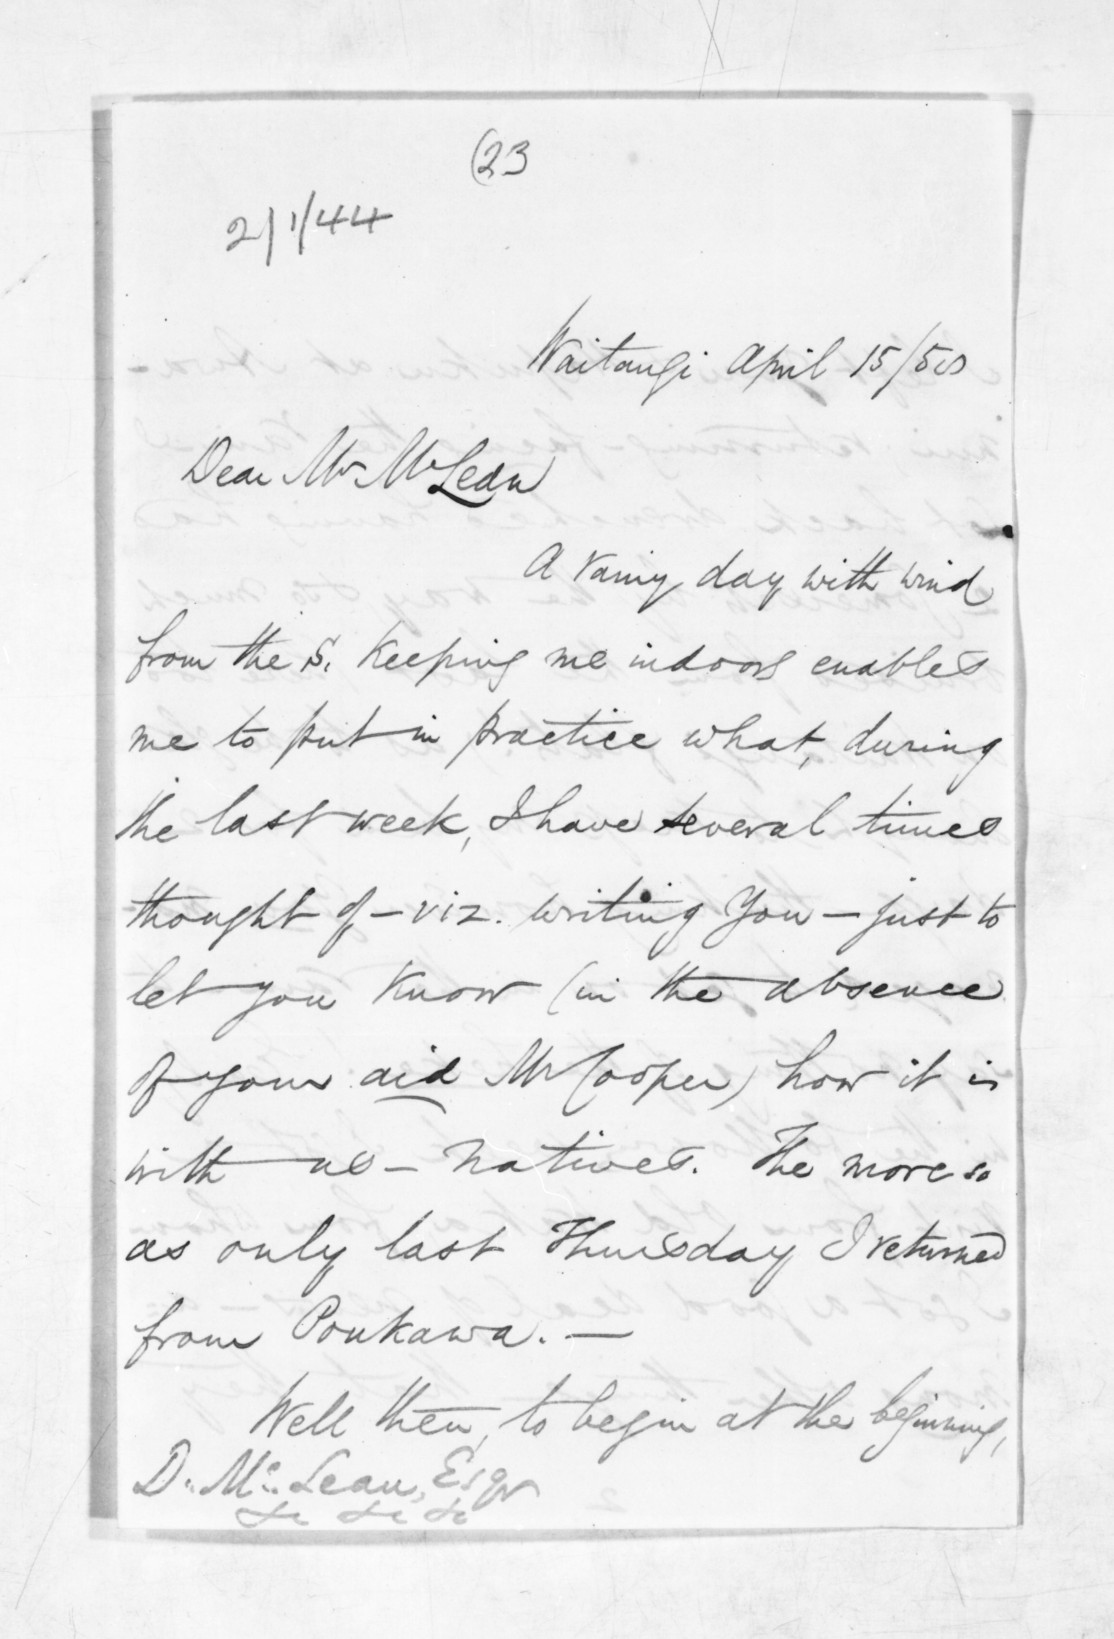 (23
2/1/44
Waitangi April 15/50
Dear Mr McLean
A rainy day with wind
from the S. keeping me indoors enables
me to put in practice what, during
the last week, I have several times
thought of – viz. writing you – just to
let you know (in the absence
of your aid Mr Cooper) how it is
with us – natives. The more so
as only last Thursday I returned
from Poukawa. —
Well then, to begin at the beginning,
D. McLean, Esqr
&c &c &c